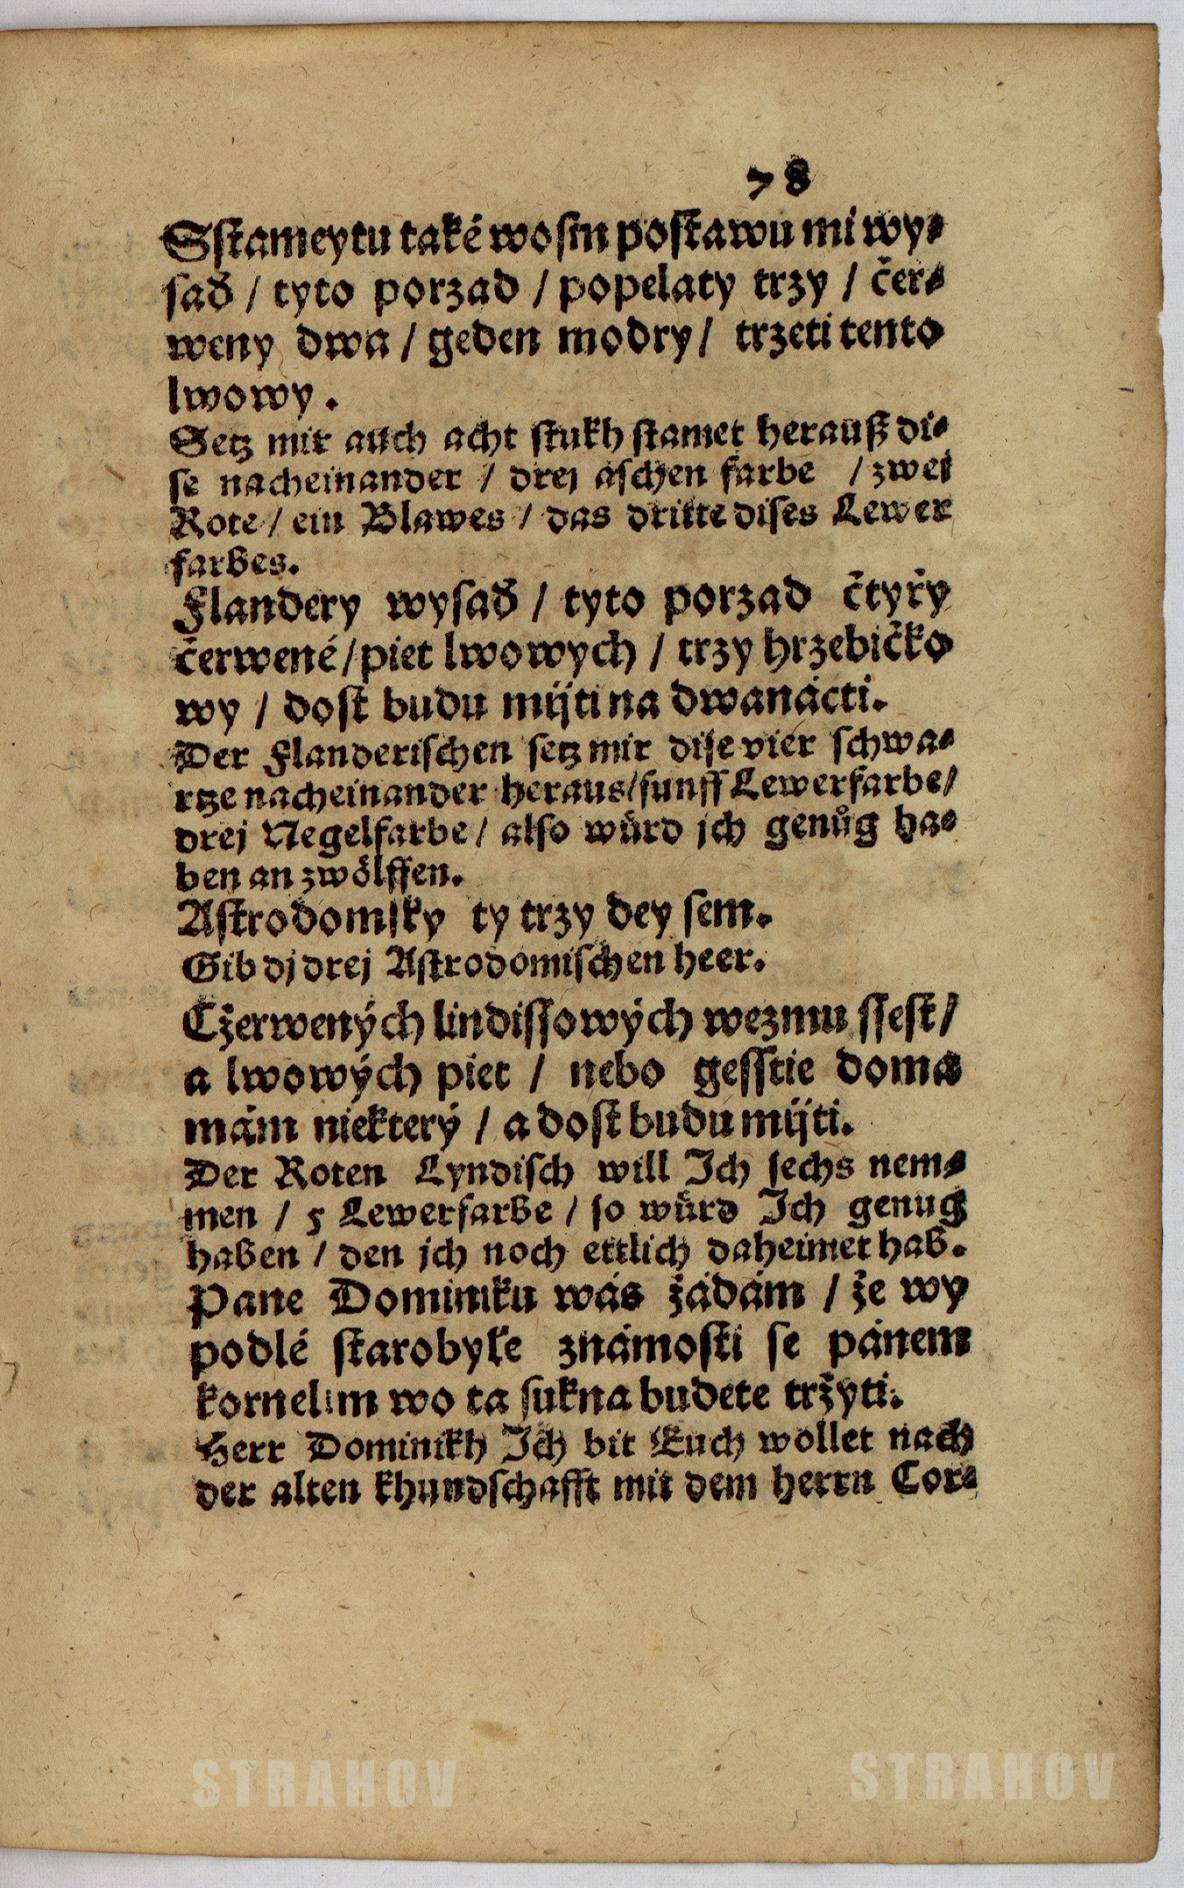 78
Sstameytu také wosm postawu mi wy⸗
sad / tyto porzad / popelaty trzy / čer⸗
weny dwa / geden modry / trzeti tento
lwowy .
Setz mir auch acht stukh stamet herauß di⸗
se nacheinander / drej aschen farbe / zwei
Rote / ein Blawes / das dritte dises Lewer
farbes.
Flandery wysad / tyto porzad čtyřy
čerwené / piet lwowych / trzy hrzebičko
wy / dost budu mijti na dwanácti.
Der Flanderischen setz mir dise vier schwa⸗
rtze nacheinander heraus / funff Lewerfarbe /
drej Negelfarbe / also wůrd jch genůg ha⸗
ben an zwölffen.
Astrodomsky ty trzy dey sem.
Gib dj drej Astrodomischen heer.
Cžerwených lindissowých wezmu ssest /
a lwowých piet / nebo gesstie doma
mám niekterý / a dost budu mijti.
Der Roten Lyndisch will Ich sechs nem⸗
men / 5 Lewerfarbe / so wůrd Ich genug
haben / den jch noch ettlich daheimet hab.
Pane Dominiku wás žádám / že wy
podlé starobyle známosti se pánem
kornelim wo ta sukna budete tržyti.
Herr Dominikh Ich bit Euch wöllet nach
der alten khundschafft mit dem herrn Cor⸗
STRAHOV STRAHOV